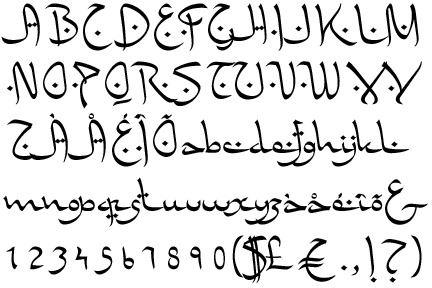 ABCDEFGHIJKLM
NOPQRSTUVWXY
ZÀÅÉÎÕabcdefghijkl
mnopqrstuvwxyzàåéîõ&
1234567890($£€.,!?)